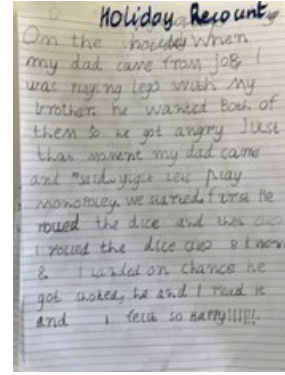 Holiday Recount
On the holiday When
my dad came from joB I
was playing lego with my
brother. he wanted Both of
them so he got angry Just
that moment my dad came
and said lets play
monopoley. we started first He
rolled the dice and then
I rolled the dice and I
& I landed on chance he
got he and I read it
and I felt so Happy!!!!!!